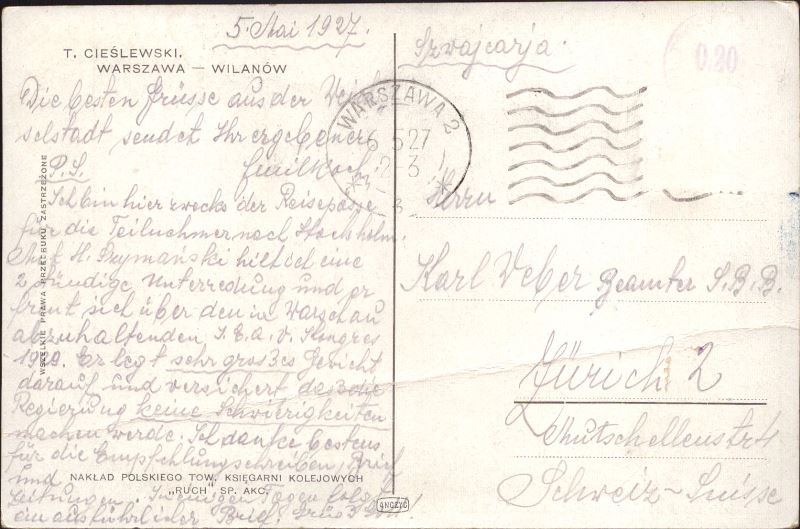 5. Mai 1927.
T. CIEŚLEWSKI.
WARSZAWA — WILANÓW
Die besten Grüsse aus der
selstadt sendet Ihr ergebener
P.S.
Emil Koch
Ich bin hier zwecks der Reisepässe
für die Teilnehmer nach Stockholm.
Mit H. Szymański hielt ich eine
2 stündige Unterredung und er
freut sich über den in Warschau
abzuhaltenden I. E. A. V. Kongres
19 9. Er legt sehr gros3es Gewicht
darauf und versichert das3 die
Regierung keine Schwierigkeiten
machen werde. Ich danke bestens
für die Empfehlungschreiben, Brief
und
Zeitungen. In einigen Tagen folgt
ein ausführlicher Brief. Grüs3
NAKŁAD POLSKIEGO TOW. KSIĘGARNI KOLEJOWYCH
„RUCH" SP. AKC.
WSZELKIE PRAWA PRZEDRUKU ZASTRZEŻONE
Szwajcarja.
0.20
WARSZAWA 2
6 5 27
2-3
Herrn
Karl Weber Beamter S.B.B.
Zürich 2
Mutschellenstr 4
Schweiz - Suisse